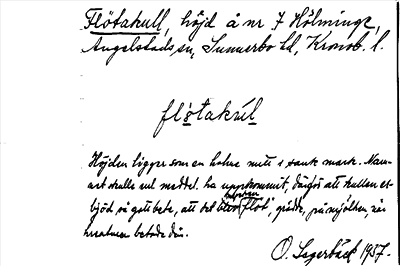 Flötakull, höjd å nr 7 Hölminge,
Angelstads sn, Sunnerbo hd, Kronob. l.
flötakúl
Höjden ligger som en holme mitt i sank mark. Nam-
net skulle enl meddel. ha uppkommit, därför att kullen er-
bjöd så gott bete, att det blev "flöt", grädde, på mjölken, när
kreaturen betade där.
O. Lagerbäck 1957.